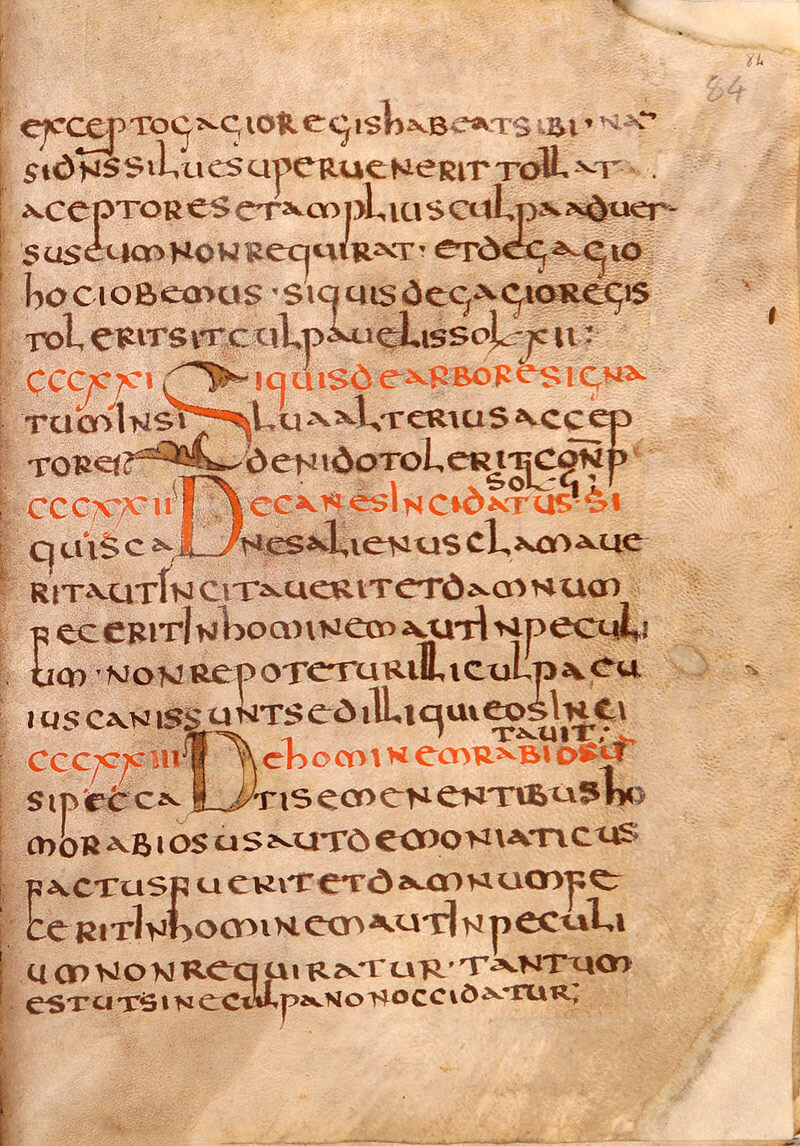 excepto gagio regis habeat sibi · na
si dns silue superuenerit tollat
acceptores et amplius culpa aduer
sus eum non requirat · et de gagio
hoc iobemus · si quis de gagio regis
tolerit sit culpauelis sol xii :
cccxxi Si quis de arbore signa
tum in silua alterius accep
tore de nido tolerit conp
sol ui ;
cccxxii De canes incidatus · Si
quis canes alienus clamaue
rit aut incitauerit et damnum
fecerit in hominem aut in peculi
um · non repotetur illi culpa cu
ius canis sunt sed illi qui eos inci
tauit .
cccxxiii De hominem rabiosu
si peccatis ementibus ho
mo rabiosus aut demoniaticus
factus fuerit et damnum fe
cerit in hominem aut in peculi
um non requiratur · tantum
est ut sine culpa non occidatur ;
84
84